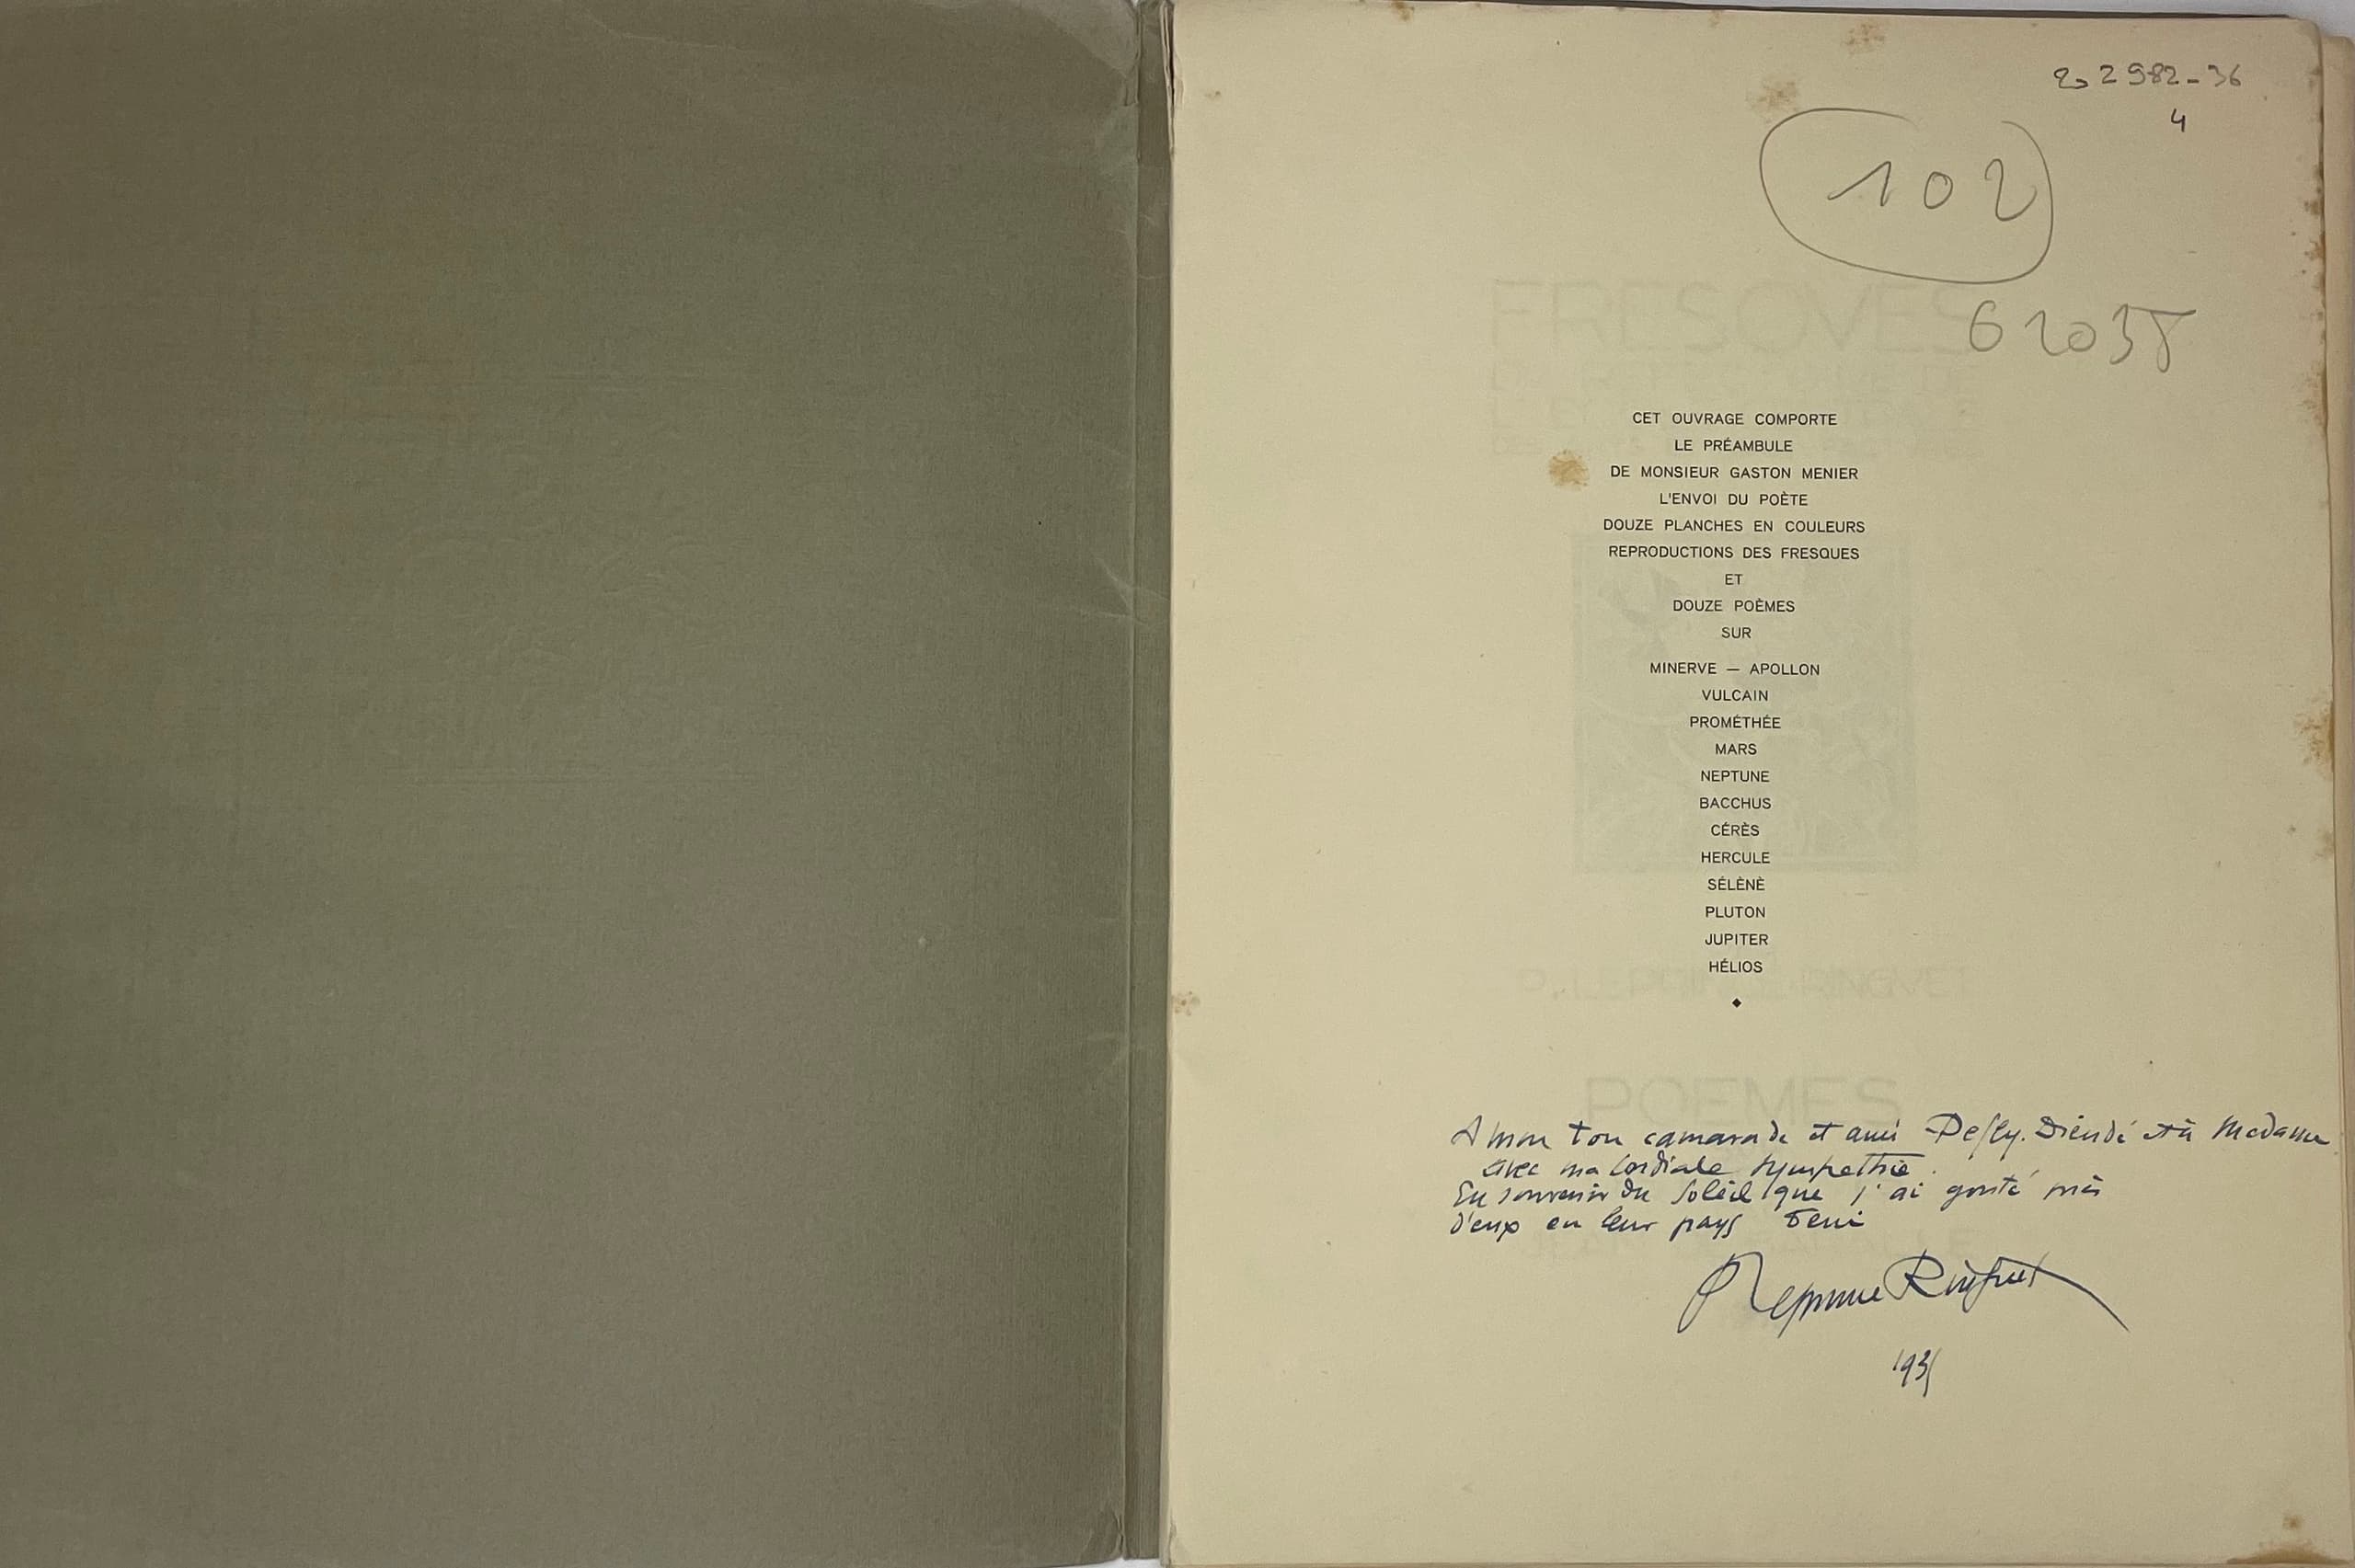 2982-36
4
102
CET OUVRAGE COMPORTE
LE PRÉAMBULE
DE MONSIEUR GASTON MENIER
L'ENVOI DU POÈTE
DOUZE PLANCHES EN COULEURS
REPRODUCTIONS DES FRESQUES
ET
DOUZE POÈMES
SUR
MINERVE — APOLLON
VULCAIN
PROMÉTHÉE
MARS
NEPTUNE
BACCHUS
CÉRÈS
HERCULE
SÉLÈNÈ
PLUTON
JUPITER
HÉLIOS
A mon bon camarade et ami et à Madame
avec ma cordiale sympathie.
En souvenir du Soleil que j'ai gouté près
d'eux en leur pays béni
Ringuet